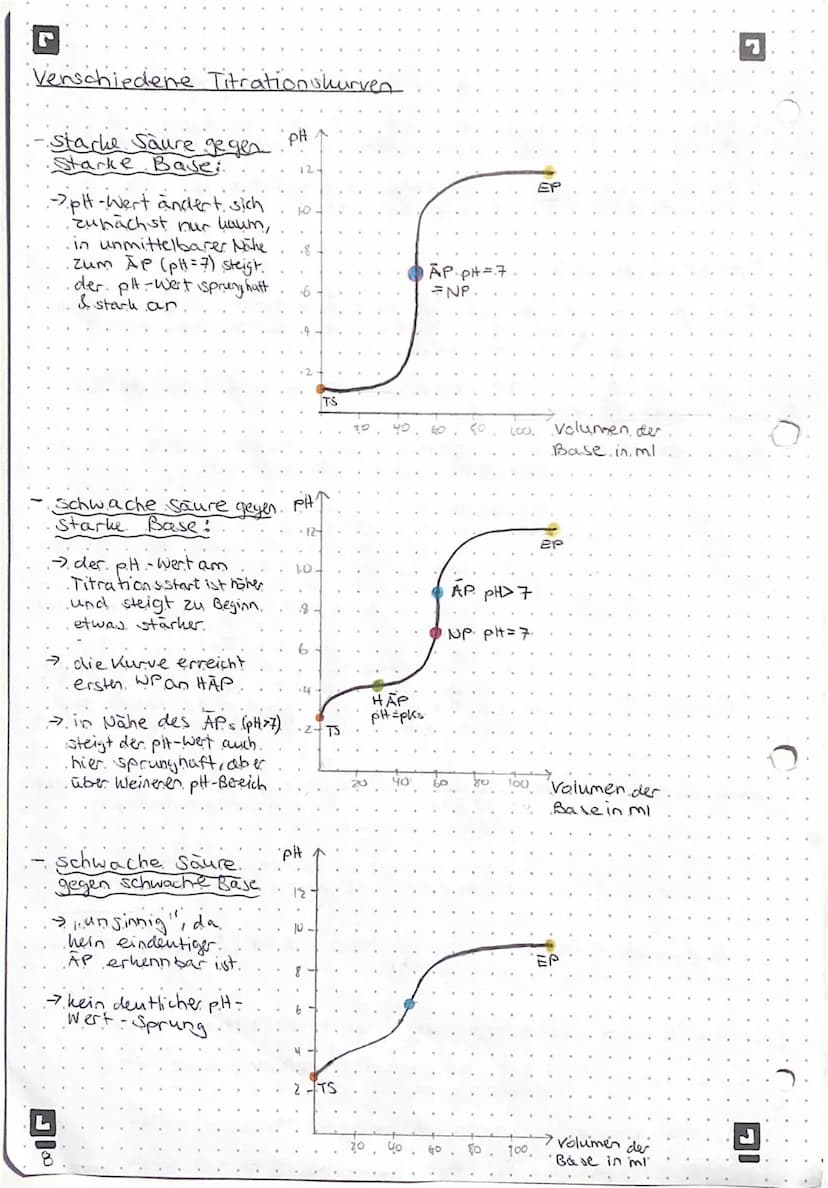 Verschiedene Titrationskurven
- starke Säure gegen
starke Base:
→ pH-Wert ändert sich
zunächst nur kaum,
in unmittelbarer Nähe
zum ÄP (pH=7) steigt
der pH-Wert sprunghaft
& stark an
pH
12
10
8
6
4
2
EP
ÄP pH=7
=NP
TS
20 40 60 80 100
Volumen der
Base in ml
- schwache Säure gegen
starke Base:
→ der pH-Wert am
Titrationsstart ist höher
und steigt zu Beginn
etwas stärker
→ die Kurve erreicht
ersten WP an HÄP
→ in Nähe des ÄPs (pH>7)
steigt der pH-Wert auch
hier sprunghaft, aber
über kleineren pH-Bereich
pH
12
10
8
6
4
2
EP
ÄP pH>7
NP pH=7
HÄP
pH=pKs
TS
20 40 60 80 100
Volumen der
Base in ml
- schwache Säure
gegen schwache Base
→ „unsinnig", da
kein eindeutiger
ÄP erkennbar ist
→ kein deutlicher pH-
Wert-Sprung
pH
12
10
8
6
4
2
EP
TS
20 40 60 80 100
Volumen der
Base in ml
8